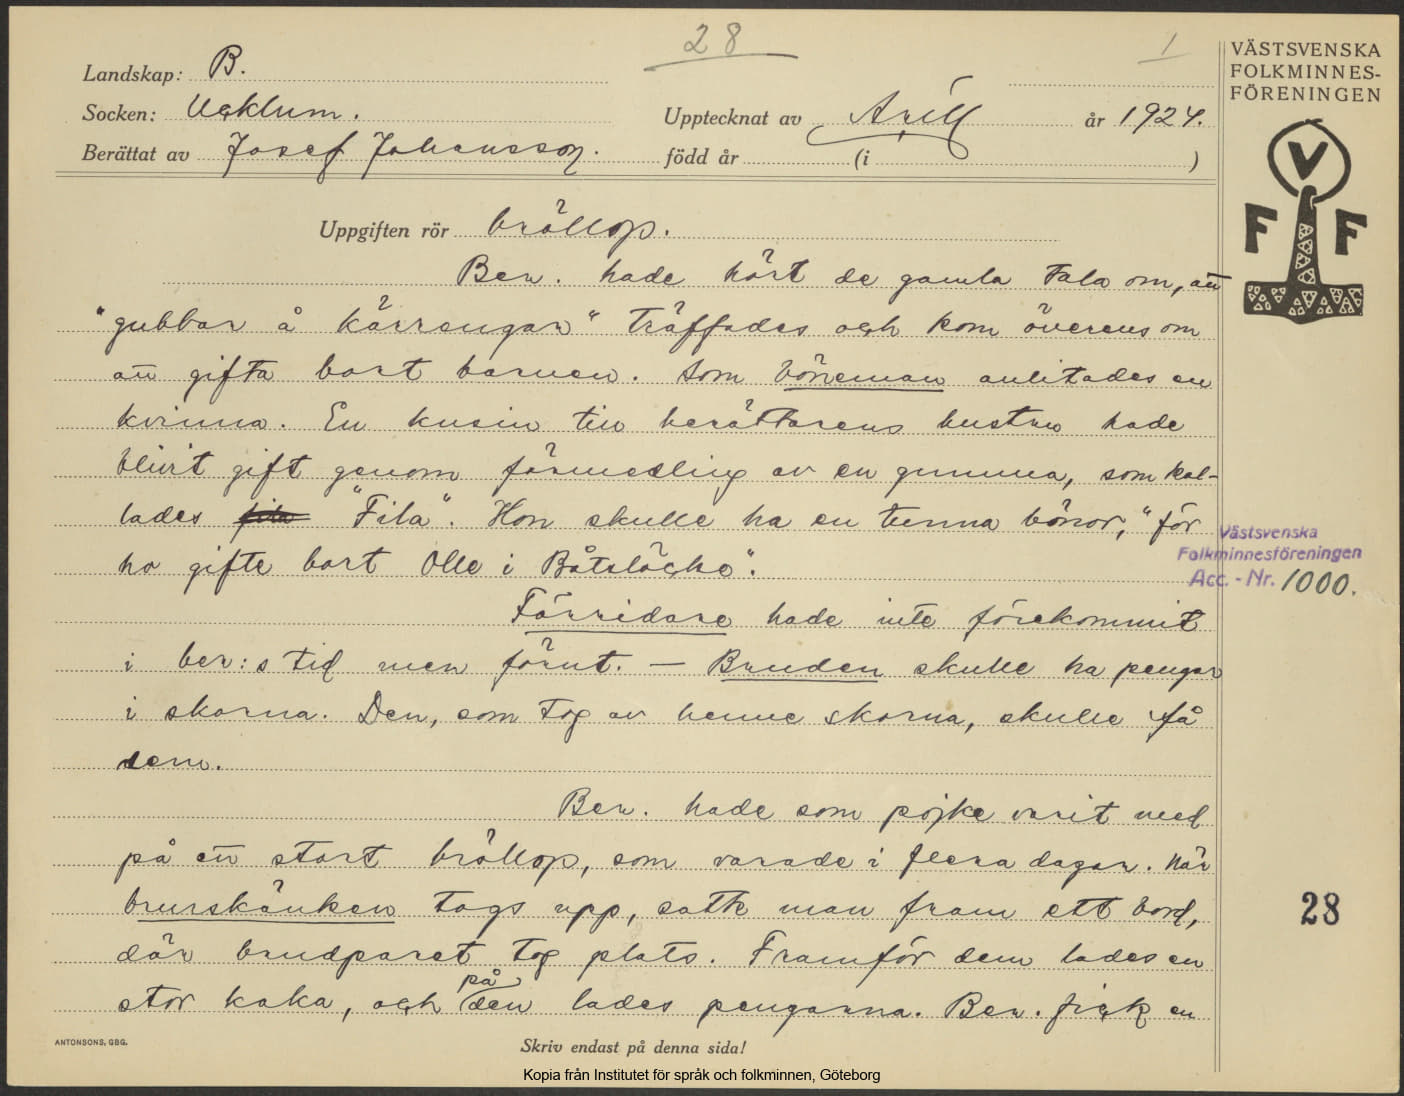 28
1
Landskap: B.
Socken: Ucklum.
Berättat av Josef Johansson.
Upptecknat av Arill år 1924.
född år (i )
VÄSTSVENSKA
FOLKMINNES-
FÖRENINGEN
V
F F
Uppgiften rör bröllop.
Ber. hade hört de gamla tala om, att
"gubbar å kärrengar" träffades och kom överens om
att gifta bort barnen. Som böneman anlitades en
kvinna. En kusin till berättarens hustru hade
blivit gift genom förmedling av en gumma, som kal-
lades fila "Fila". Hon skulle ha en tunna bönor, "för
ho gifte bort Olle i Båtslöcke".
Förridare hade inte förekommit
i ber:s tid men förut. — Bruden skulle ha pengar
i skorna. Den, som tog av henne skorna, skulle få
dem.
Ber. hade som pojke varit med
på ett stort bröllop, som varade i flera dagar. När
brurskänken togs upp, satte man fram ett bord,
där brudparet tog plats. Framför dem lades en
stor kaka, och på den lades pengarna. Ber. fick en
Västsvenska
Folkminnesföreningen
Acc. - Nr. 1000.
28
ANTONSONS, GBG.
Skriv endast på denna sida!
Kopia från Institutet för språk och folkminnen, Göteborg